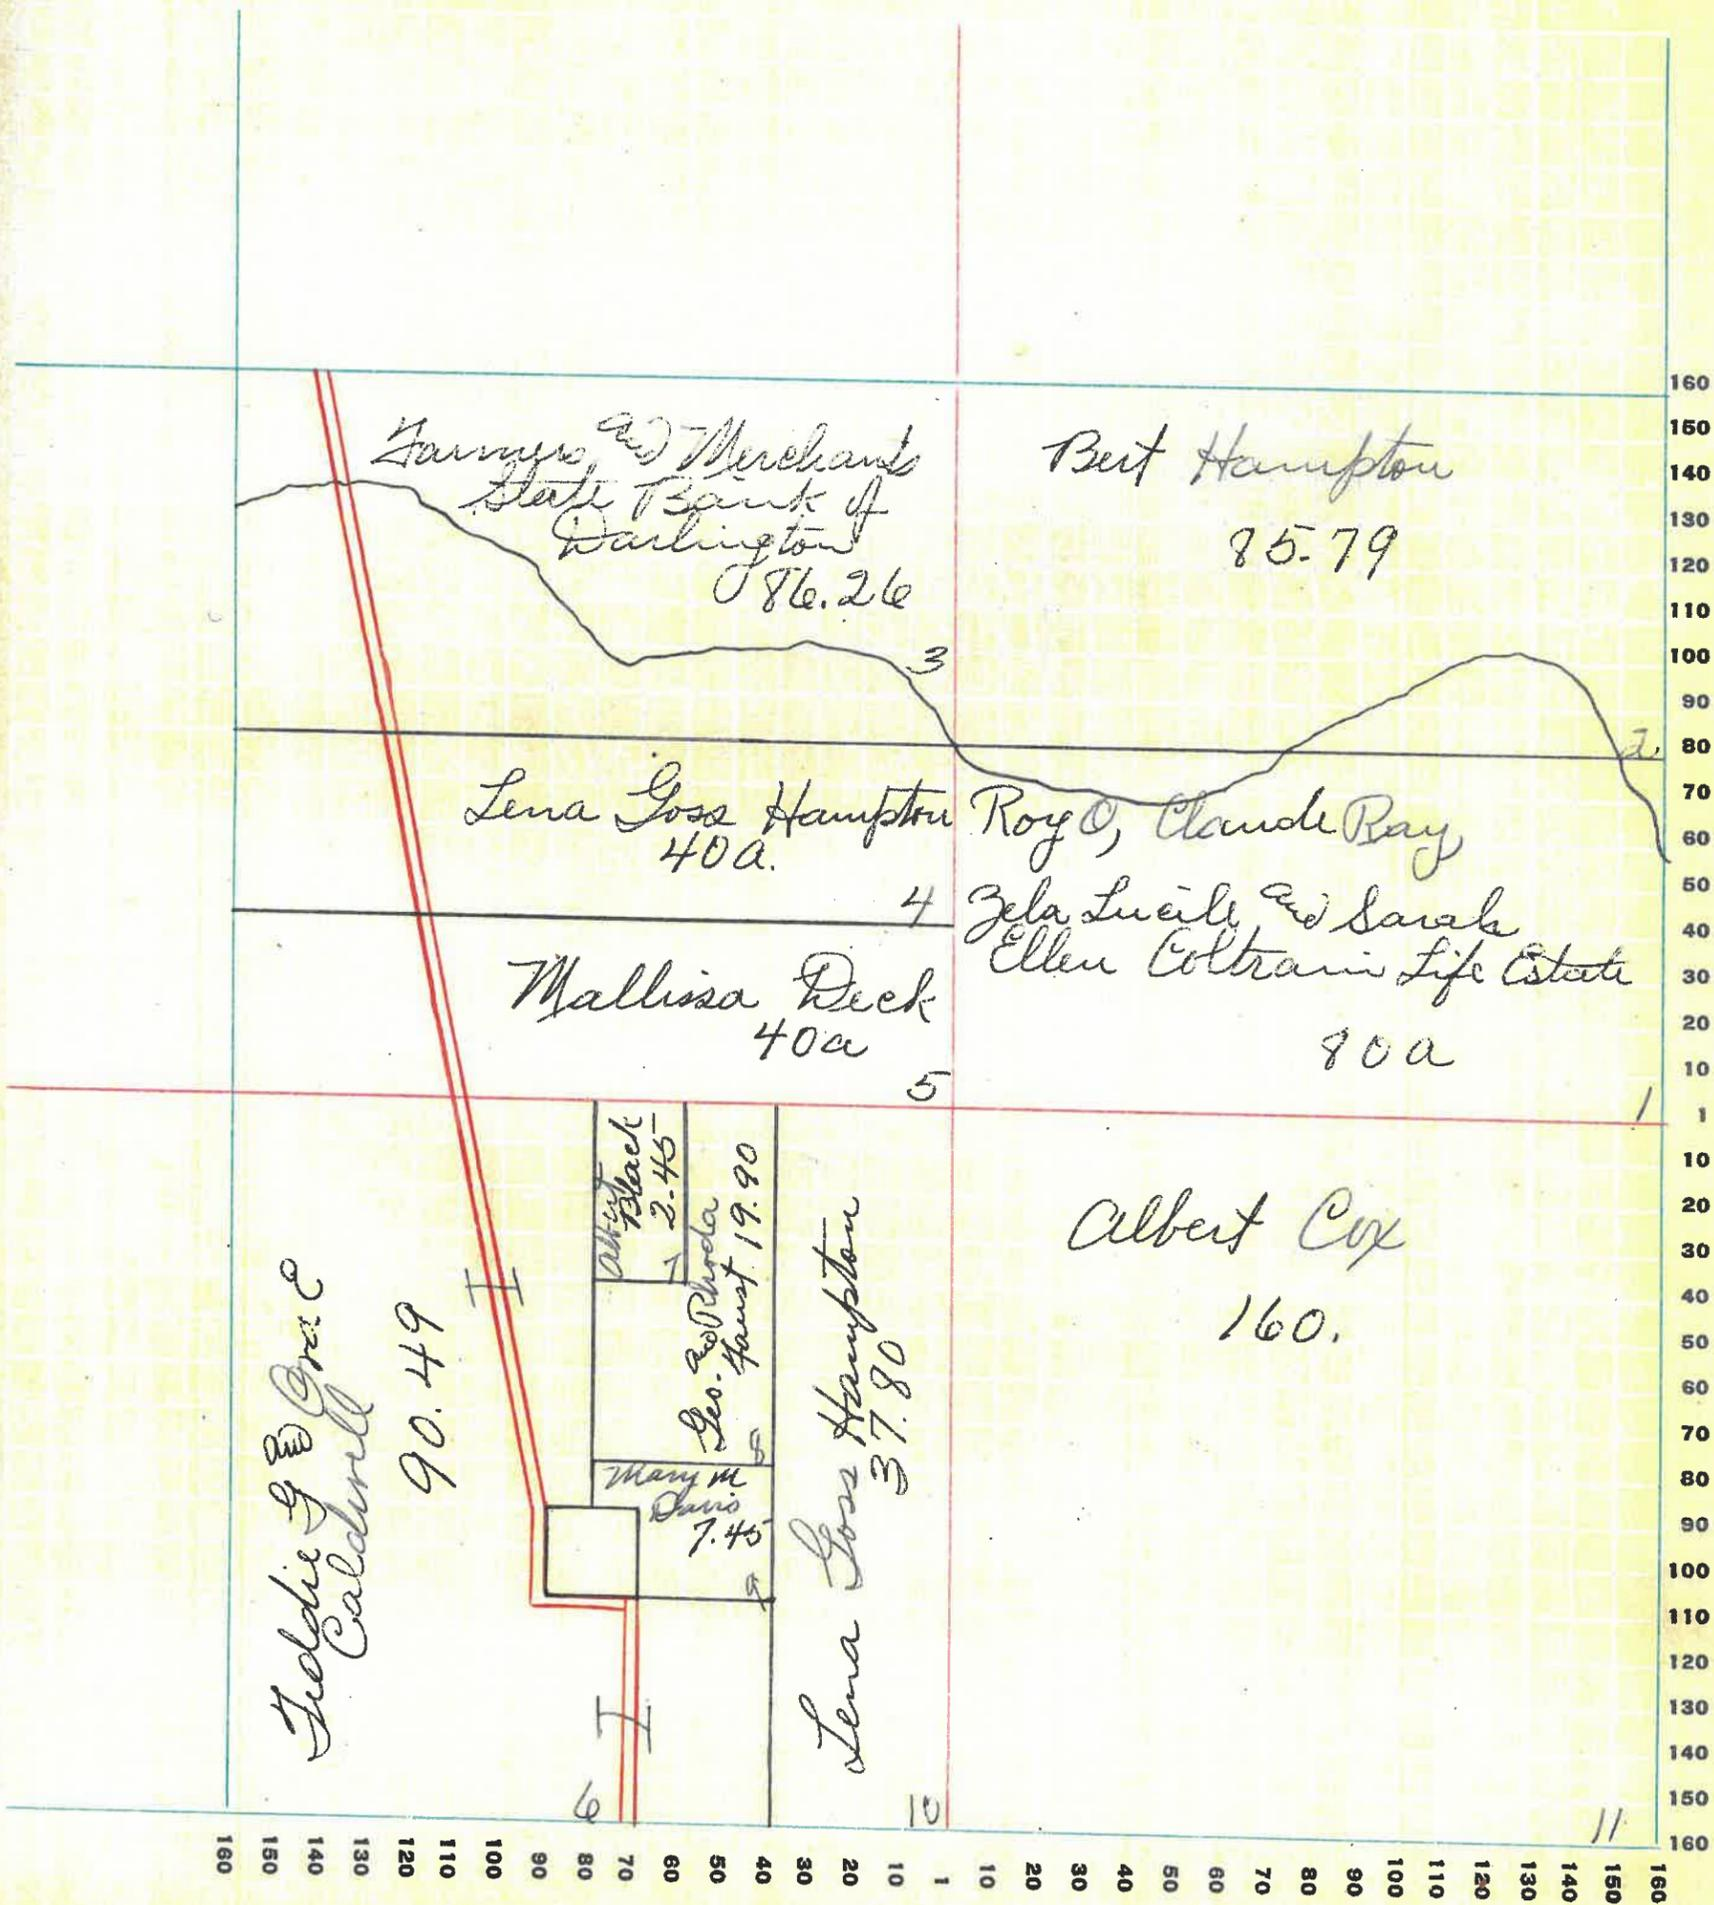 Farmers and Merchants
State Bank of
Darlington
86.26
3
Bert Hampton
85.79
2
Lena Goss Hampton
40a.
4
Roy O, Claude Ray,
Zela Lucile and Sarah
Ellen Coltrain Life Estate
80a
1
Mallissa Deck
40a
5
Black
2.45
7
Geo. and Rhoda
Faust 19.90
8
Mary M
Davis
7.45
9
Lena Goss Hampton
37.80
10
Albert Cox
160.
11
G and Ora E
Caldwell
90.49
6
160
150
140
130
120
110
100
90
80
70
60
50
40
30
20
10
1
10
20
30
40
50
60
70
80
90
100
110
120
130
140
150
160
160 150 140 130 120 110 100 90 80 70 60 50 40 30 20 10 1 10 20 30 40 50 60 70 80 90 100 110 120 130 140 150 160